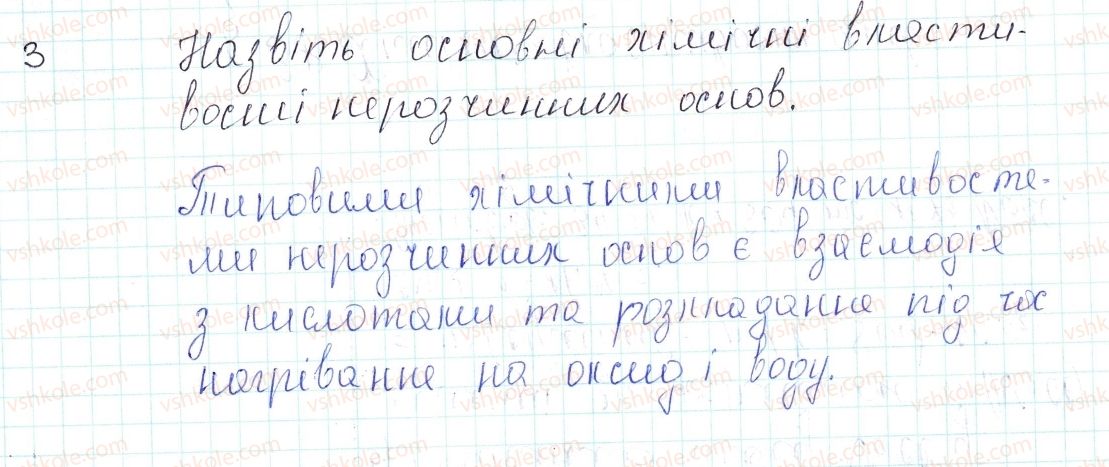 3 Назвіть основні хімічні власти-
вості нерозчинних основ.
Типовими хімічними властивостя-
ми нерозчинних основ є взаємодія
з кислотами та розкладання під час
нагрівання на оксид і воду.